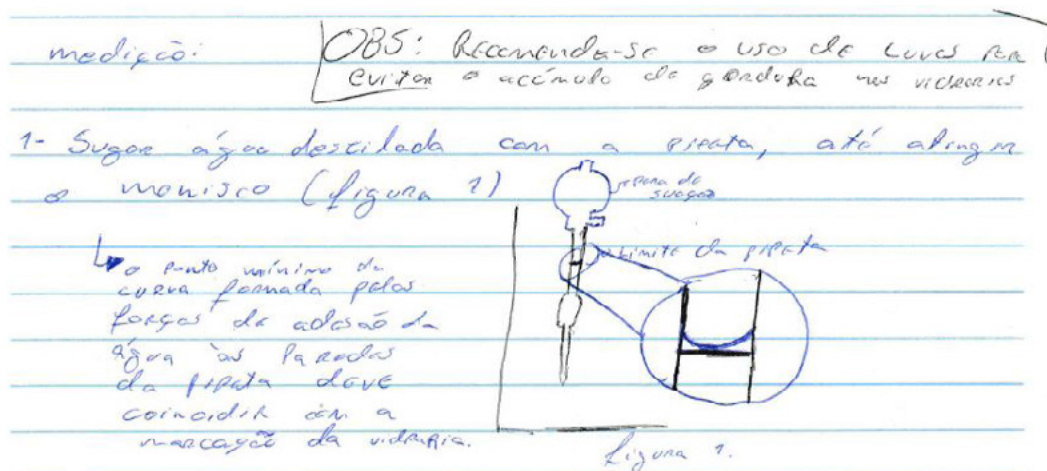 medição:
OBS: Recomenda-se o uso de luvas para
evitar o acúmulo de gordura nas vidrarias
1- Sugar água destilada com a pipeta, até atingir
o menisco (figura 1)
pera de
sucção
Limite da pipeta
o ponto mínimo da
curva formada pelas
forças de adesão da
água às paredes
da pipeta deve
coincidir com a
marcação da vidraria.
figura 1.